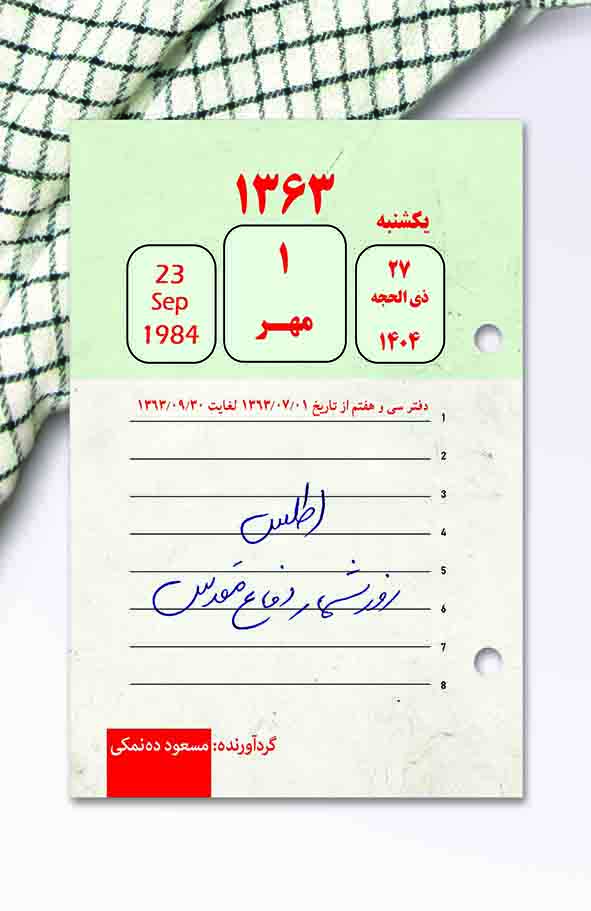 ۱۳۶۳
یکشنبه
۲۷
ذی الحجه
۱۴۰۴
۱
مهـر
23
Sep
1984
دفتر سی و هفتم از تاریخ ۱۳۶۳/۰۷/۰۱ لغایت ۱۳۶۳/۰۹/۳۰
1
2
3
اطلس
4
5
روزشمار دفاع مقدس
6
7
8
گردآورنده: مسعود ده‌نمکی